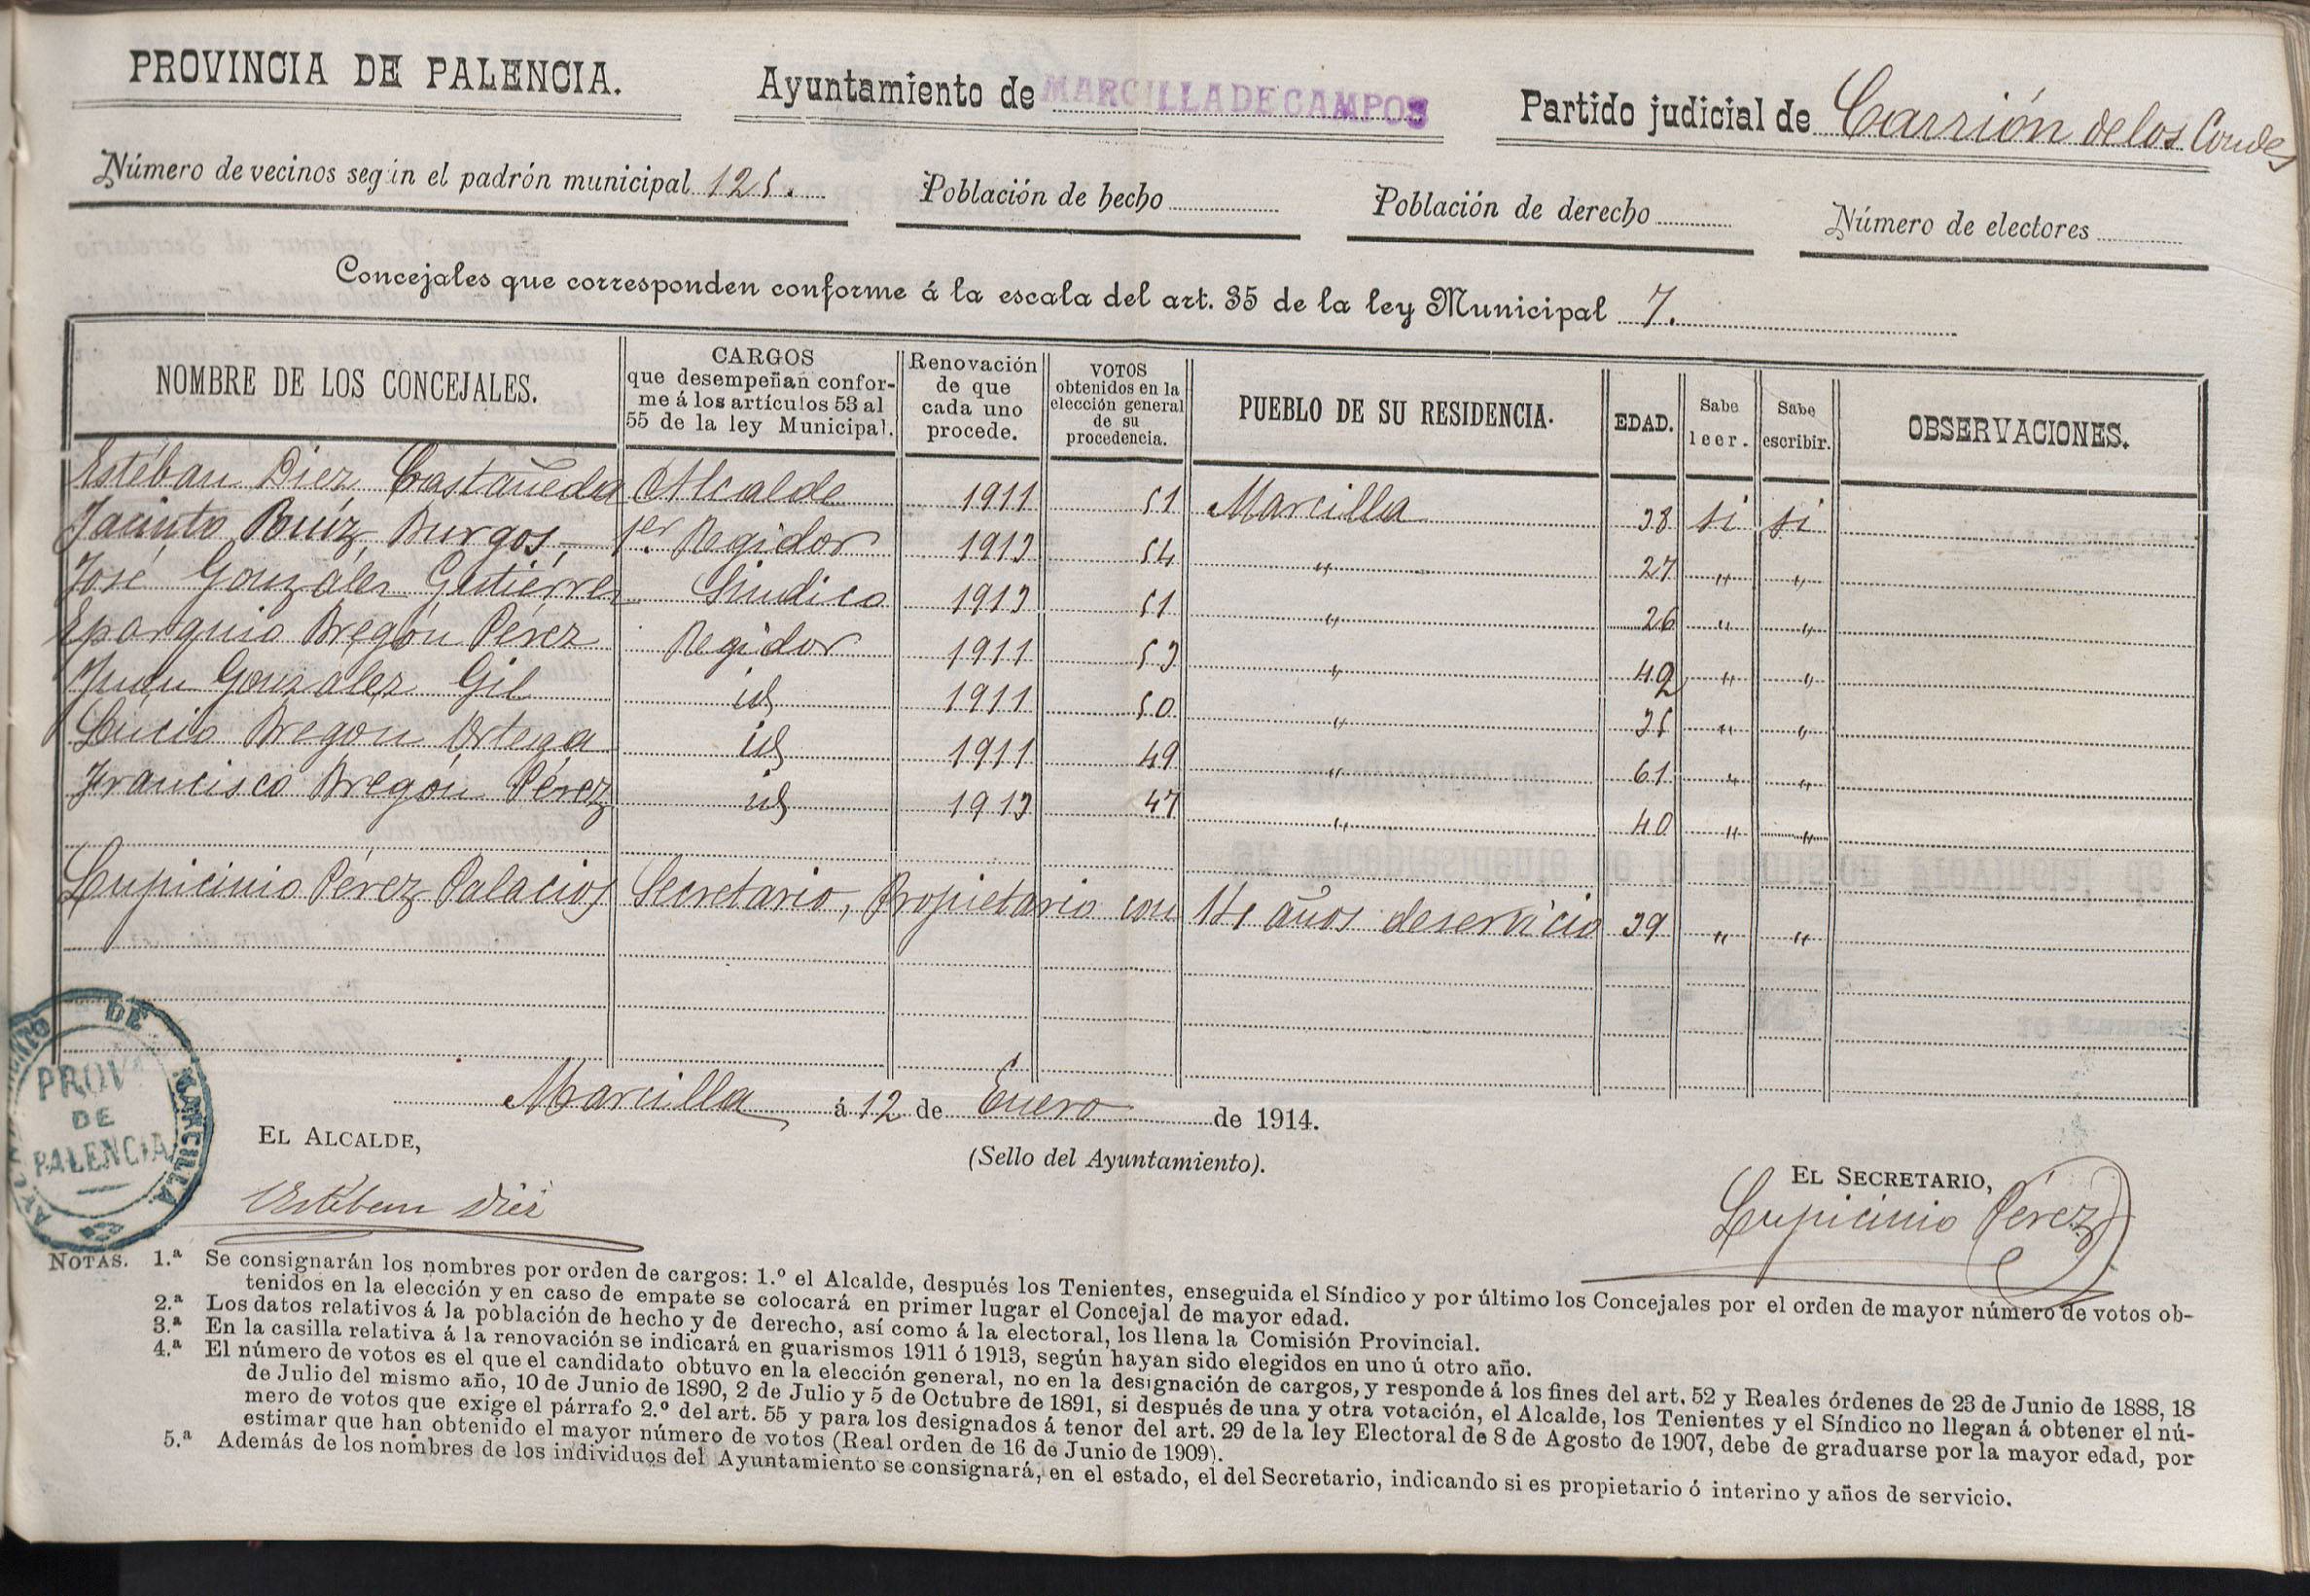 PROVINCIA DE PALENCIA. Ayuntamiento de MARCILLA DE CAMPOS Partido judicial de Carrión de los Condes
Número de vecinos según el padrón municipal 125. Población de hecho Población de derecho Número de electores
Concejales que corresponden conforme á la escala del art. 35 de la ley Municipal 7.
NOMBRE DE LOS CONCEJALES. CARGOS que desempeñan conforme á los artículos 53 al 55 de la ley Municipal. Renovación de que cada uno procede. VOTOS obtenidos en la elección general de su procedencia. PUEBLO DE SU RESIDENCIA. EDAD. Sabe leer. Sabe escribir. OBSERVACIONES.
Estéban Diez Castañeda Alcalde 1911 51 Marcilla 38 si si
Jacinto Ruíz Burgos, 1er Regidor 1913 54 " 27 " "
José González Gutiérrez Síndico 1913 51 " 26 " "
Eparquio Bregón Pérez Regidor 1911 53 " 42 " "
Juan González Gil id 1911 50 " 35 " "
Lucio Bregón Ortega id 1911 49 " 61 " "
Francisco Bregón Pérez id 1913 47 " 40 " "
Lupicinio Pérez Palacios Secretario, Propietario con años de servicio 39 " "
Marcilla á 12 de Enero de 1914.
EL ALCALDE,
(Sello del Ayuntamiento).
EL SECRETARIO,
Estéban Diez
Lupicinio Pérez
AYUNTAMIENTO DE MARCILLA
PROVa
DE
PALENCIA
NOTAS. 1.ª Se consignarán los nombres por orden de cargos: 1.º el Alcalde, después los Tenientes, enseguida el Síndico y por último los Concejales por el orden de mayor número de votos ob-
tenidos en la elección y en caso de empate se colocará en primer lugar el Concejal de mayor edad.
2.ª Los datos relativos á la población de hecho y de derecho, así como á la electoral, los llena la Comisión Provincial.
3.ª En la casilla relativa á la renovación se indicará en guarismos 1911 ó 1913, según hayan sido elegidos en uno ú otro año.
4.ª El número de votos es el que el candidato obtuvo en la elección general, no en la designación de cargos, y responde á los fines del art. 52 y Reales órdenes de 23 de Junio de 1888, 18
de Julio del mismo año, 10 de Junio de 1890, 2 de Julio y 5 de Octubre de 1891, si después de una y otra votación, el Alcalde, los Tenientes y el Síndico no llegan á obtener el nú-
mero de votos que exige el párrafo 2.º del art. 55 y para los designados á tenor del art. 29 de la ley Electoral de 8 de Agosto de 1907, debe de graduarse por la mayor edad, por
estimar que han obtenido el mayor número de votos (Real orden de 16 de Junio de 1909).
5.ª Además de los nombres de los individuos del Ayuntamiento se consignará, en el estado, el del Secretario, indicando si es propietario ó interino y años de servicio.